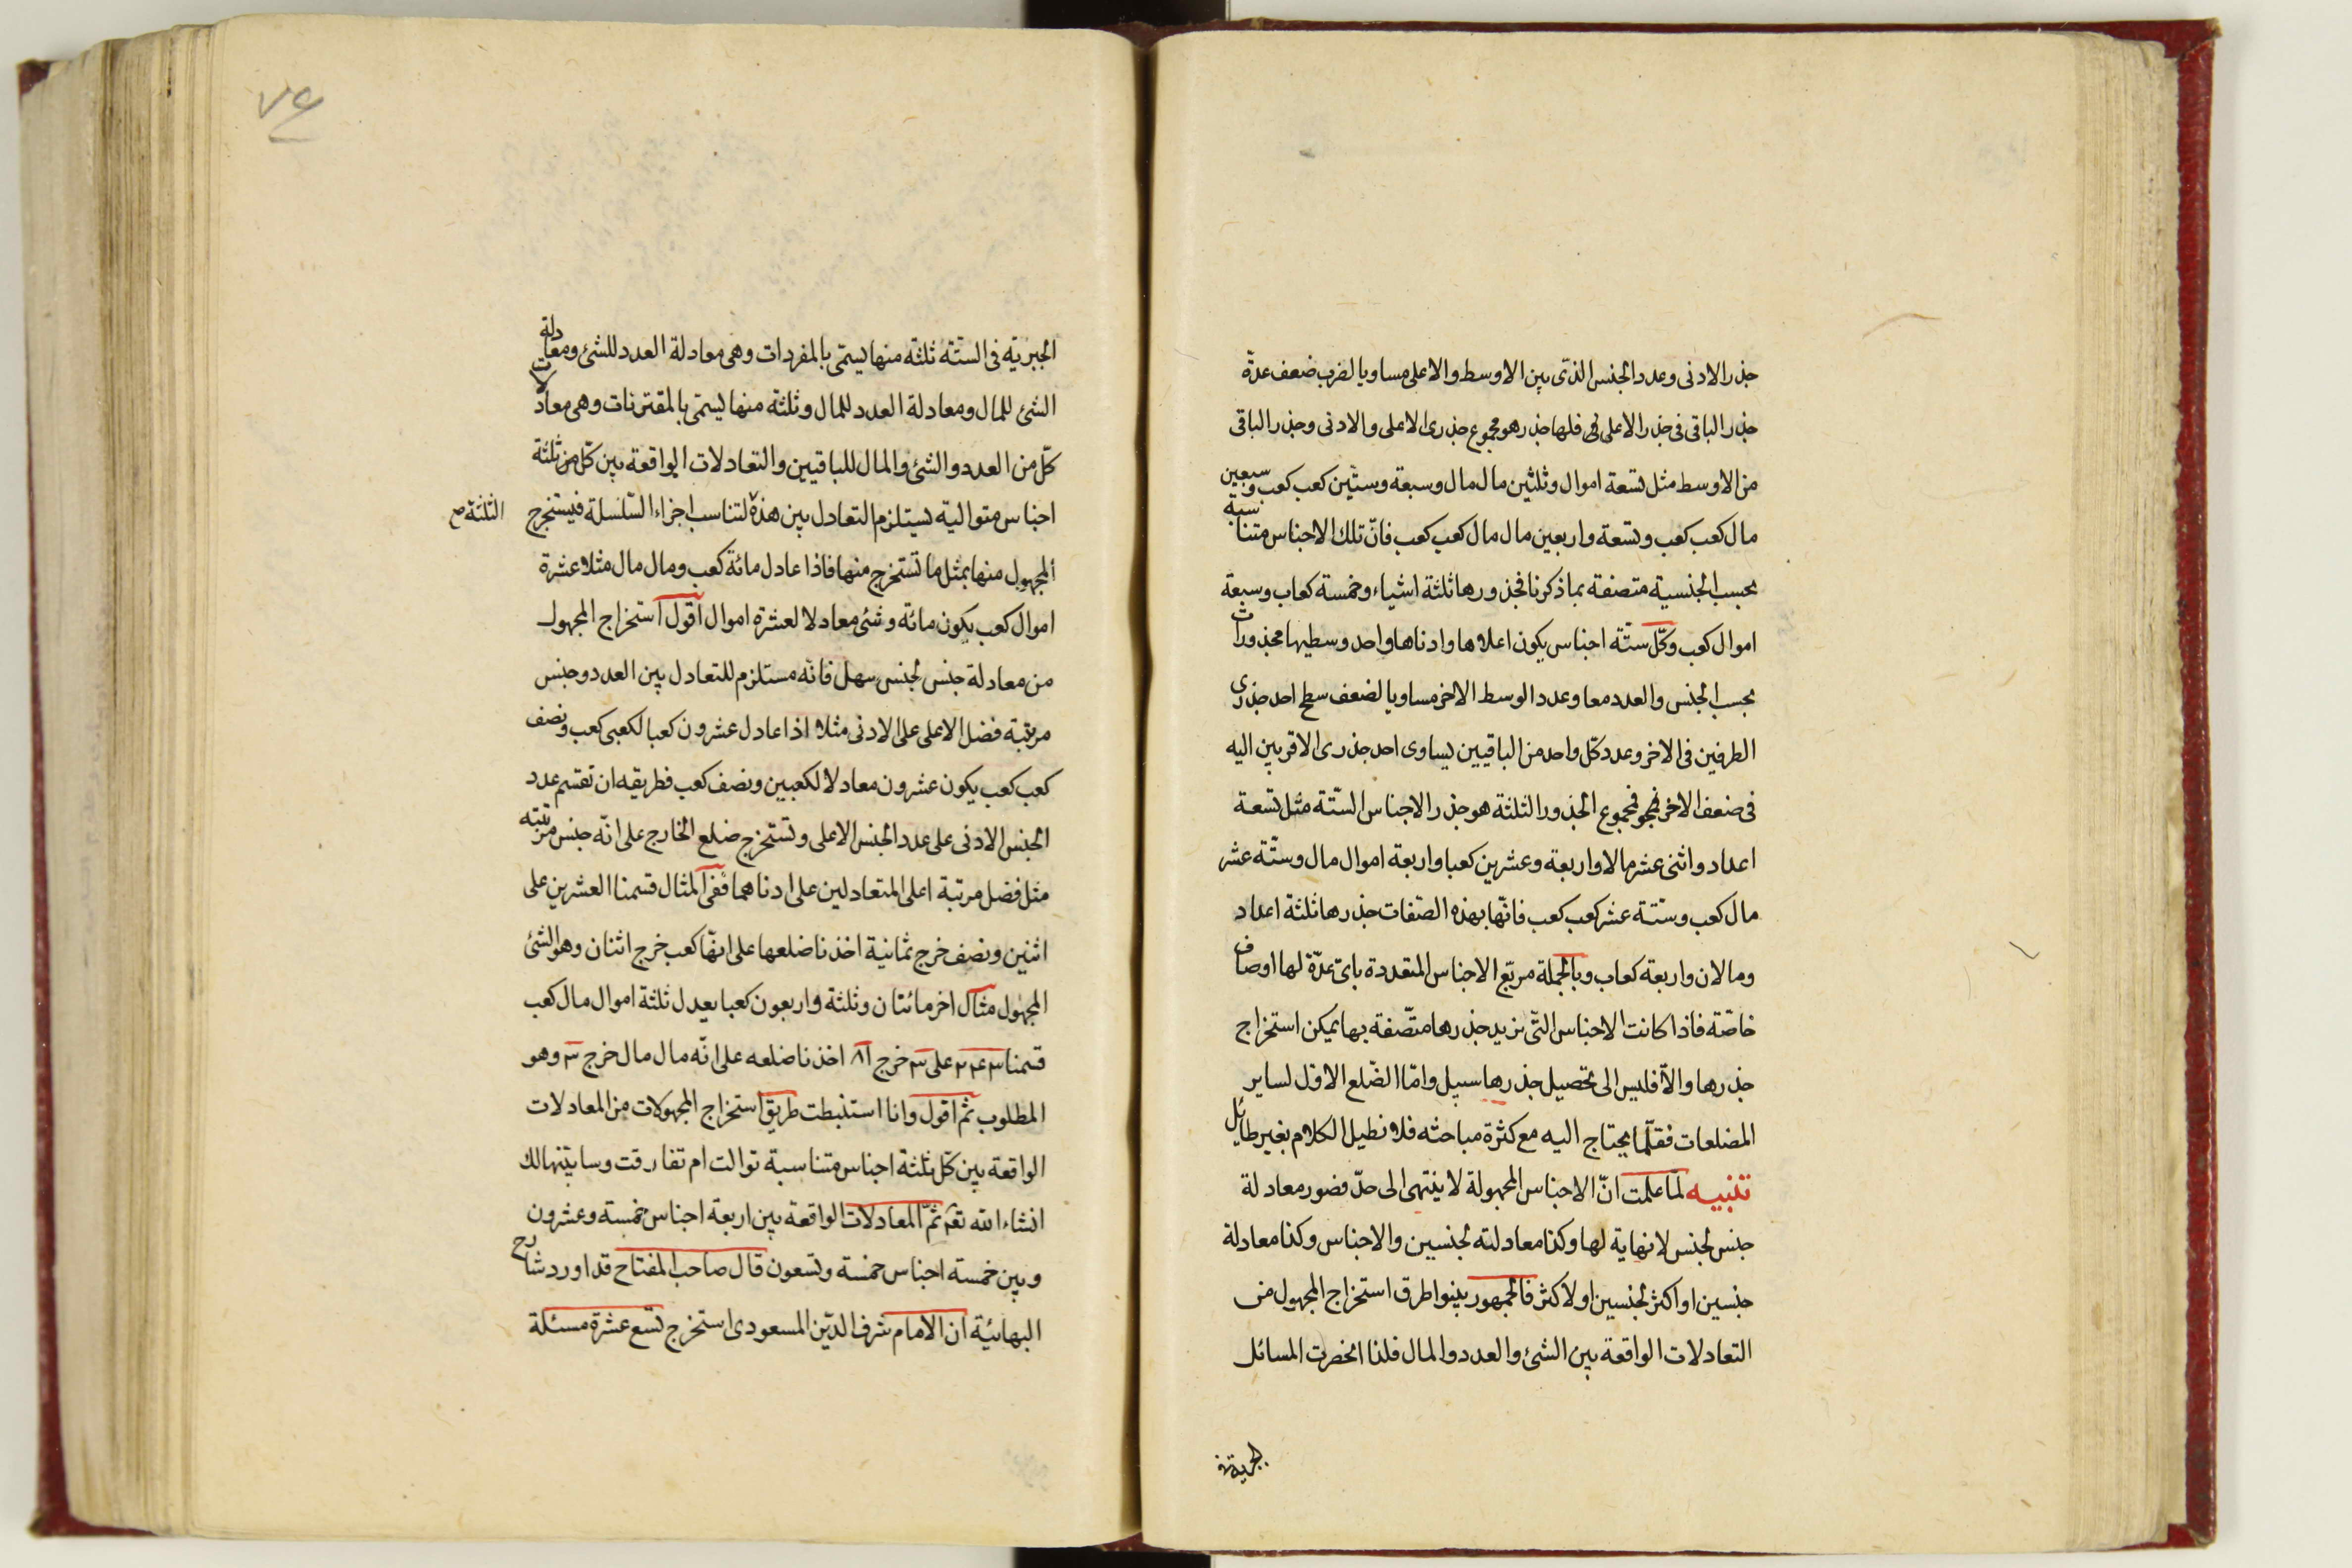 جذر الادنى وعدد الجنس الذى بين الاوسط والاعلى مساويا لضرب ضعف عدّة
جذر الباقى فى جذر الاعلى فلها جذر هو مجموع جذرى الاعلى والادنى وجذر الباقى
من الاوسط مثل تسعة اموال وثلثين مال مال وسبعة وستّين كعب كعب وسبعين
مال كعب كعب وتسعة واربعين مال مال كعب كعب فانّ تلك الاجناس متناسبة
بحسب الجنسية متصفة بما ذكرنا فجذورها ثلثة اشياء وخمسة كعاب وسبعة
اموال كعب وكلّ ستّة اجناس يكون اعلاها وادناها واحد وسطيها مجذورات
بحسب الجنس والعدد معا وعدد الوسط الاخر مساويا لضعف سطح احد جذرى
الطرفين فى الاخر وعدد كلّ واحد من الباقيين يساوى احد جذرى الاقربين اليه
فى ضعف الاخر فمجموع الجذور الثلثة هو جذر الاجناس الستّة مثل تسعة
اعداد واثنى عشر مالا واربعة وعشرين كعبا واربعة اموال مال وستّة عشر
مال كعب وستّة عشر كعب كعب فانّها بهذه الصّفات جذرها ثلثة اعداد
ومالان واربعة كعاب وبالجملة مربّع الاجناس المتعددة باىّ عدّة لها اوصاف
خاصّة فاذا كانت الاجناس التّى نريد جذرها متّصفة بها يمكن استخراج
جذرها والّا فليس الى تحصيل جذرها سبيل وامّا الضّلع الاوّل لساير
المضلعات فقلّما يحتاج اليه مع كثرة مباحثه فلا نطيل الكلام بغير طائل
تنبيه لمّا علمت انّ الاجناس المجهولة لا ينتهى الى حدّ فصور معادلة
جنس لجنس لا نهاية لها وكذا معادلته لجنسين والاجناس وكذا معادلة
جنسين او اكثر لجنسين او لاكثر فالجمهور بيّنوا طرق استخراج المجهول من
التعادلات الواقعة بين الشئ والعدد والمال فلذا انحصرت المسائل
الجبرية فى
٧٤
الجبرية فى الستّة ثلثة منها يسمّى بالمفردات وهى معادلة العدد للشئ ومعادلة
الشئ للمال ومعادلة العدد للمال وثلثة منها يسمّى بالمقترنات وهى معادلات
كلّ من العدد والشئ والمال للباقيين والتعادلات الواقعة بين كلّ من ثلثة
اجناس متوالية يستلزم التعادل بين هذه لتناسب اجزاء السّلسلة فيستخرج
الثلثة صح
المجهول منها بمثل ما تستخرج منها فاذا عادل مائة كعب ومال مال مثلا عشرة
اموال كعب يكون مائة وشئ معادلا لعشرة اموال اقول استخراج المجهول
من معادلة جنس لجنس سهل فانّه مستلزم للتعادل بين العدد وجنس
مرتبة فضل الاعلى على الادنى مثلا اذا عادل عشرون كعبا لكعبى كعب ونصف
كعب كعب يكون عشرون معادلا لكعبين ونصف كعب فطريقه ان تقسم عدد
الجنس الادنى على عدد الجنس الاعلى وتستخرج ضلع الخارج على انّه جنس مرتبته
مثل فضل مرتبة اعلى المتعادلين على ادناهما ففى المثال قسمنا العشرين على
اثنين ونصف خرج ثمانية اخذنا ضلعها على انّها كعب خرج اثنان وهو الشئ
المجهول مثال اخر مائتان وثلثة واربعون كعبا يعدل ثلثة اموال مال كعب
قسمنا ٢٤٣ على ٣ خرج ٨١ اخذنا ضلعه على انّه مال مال خرج ٣ وهو
المطلوب ثم اقول وانا استنبطت طريق استخراج المجهولات من المعادلات
الواقعة بين كلّ ثلثة اجناس متناسبة توالت ام تفارقت وسابيّنها لك
انشاء الله تعم ثمّ المعادلات الواقعة بين اربعة اجناس خمسة وعشرون
وبين خمسة اجناس خمسة وتسعون قال صاحب المفتاح قد اورد شارح
البهائية ان الامام شرف الدّين المسعودى استخرج تسع عشرة مسئلة